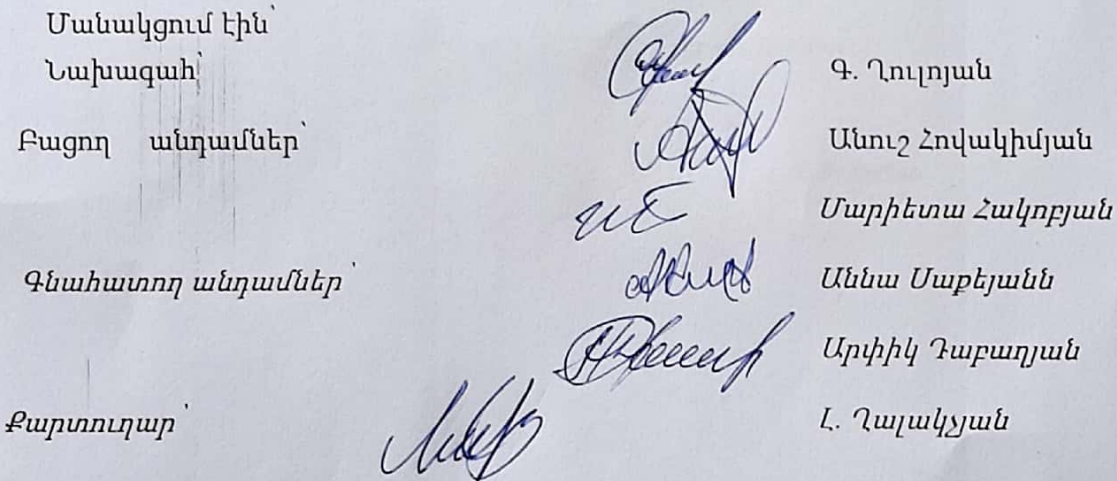 Մանակցում էին՝
Նախագահ՝ Գ. Ղուլոյան
Բացող անդամներ՝ Անուշ Հովակիմյան
Մարիետա Հակոբյան
Գնահատող անդամներ՝ Աննա Սաքեյանն
Արփիկ Դաբաղյան
Քարտուղար՝ Լ. Ղալակչյան